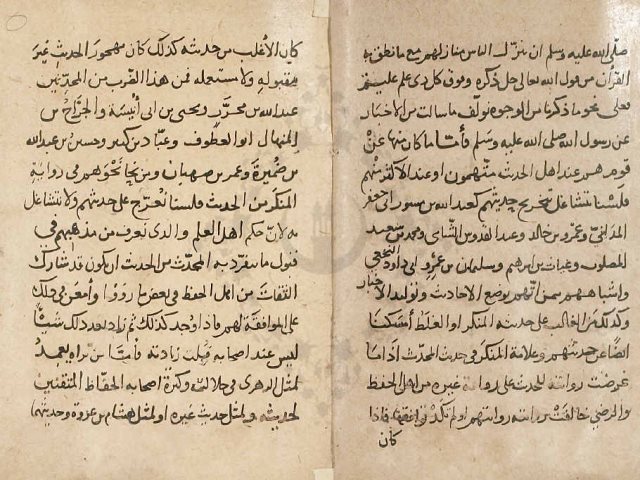 صلى الله عليه وسلم ان ننزل الناس منازلهم مع ما نطق به
القرآن من قول الله تعالى جل ذكره وفوق كل ذي علم عليم
فعلى نحو ما ذكرنا من الوجوه نولف ما سالت من الاخبار
عن رسول الله صلى الله عليه وسلم فأما ما كان منها عن
قوم هم عند اهل الحديث متهمون او عند الاكثر منهم
فلسنا نتشاغل بتخريج حديثهم كعبد الله بن مسور ابي جعفر
المدائني وعمرو بن خالد وعبد القدوس الشامي ومحمد بن سعيد
المصلوب وغياث بن ابرهيم وسليمان بن عمرو ابي داود النخعي
واشباههم ممن اتهم بوضع الاحاديث وتوليد الاخبار
وكذلك من الغالب على حديثه المنكر او الغلط أمسكنا
ايضا عن حديثهم وعلامة المنكر في حديث المحدث اذا ما
عرضت روايته للحديث على رواية غيره من اهل الحفظ
والرضى خالفت روايته روايتهم او لم تكد توافقها فاذا
كان
كان الأغلب من حديثه كذلك كان مهجور الحديث غير
مقبوله ولا مستعمله فمن هذا الضرب من المحدثين
عبد الله بن محرر ويحيى بن ابي أنيسة والجراح بن
المنهال ابو العطوف وعباد بن كثير وحسين بن عبد الله
بن ضميرة وعمر بن صهبان ومن نحا نحوهم في رواية
المنكر من الحديث فلسنا نعرج على حديثهم ولا نتشاغل
به لأن حكم اهل العلم والذي نعرف من مذهبهم في
قبول ما ينفرد به المحدث من الحديث ان يكون قد شارك
الثقات من اهل الحفظ في بعض ما رووا وأمعن في ذلك
على الموافقة لهم فاذا وجد كذلك ثم زاد بعد ذلك شيئا
ليس عند اصحابه قبلت زيادته فأما من تراه يعمد
لمثل الزهري في جلالته وكثرة اصحابه الحفاظ المتقنين
لحديثه ولمثل حديث غيره او لمثل هشام بن عروة وحديثهما